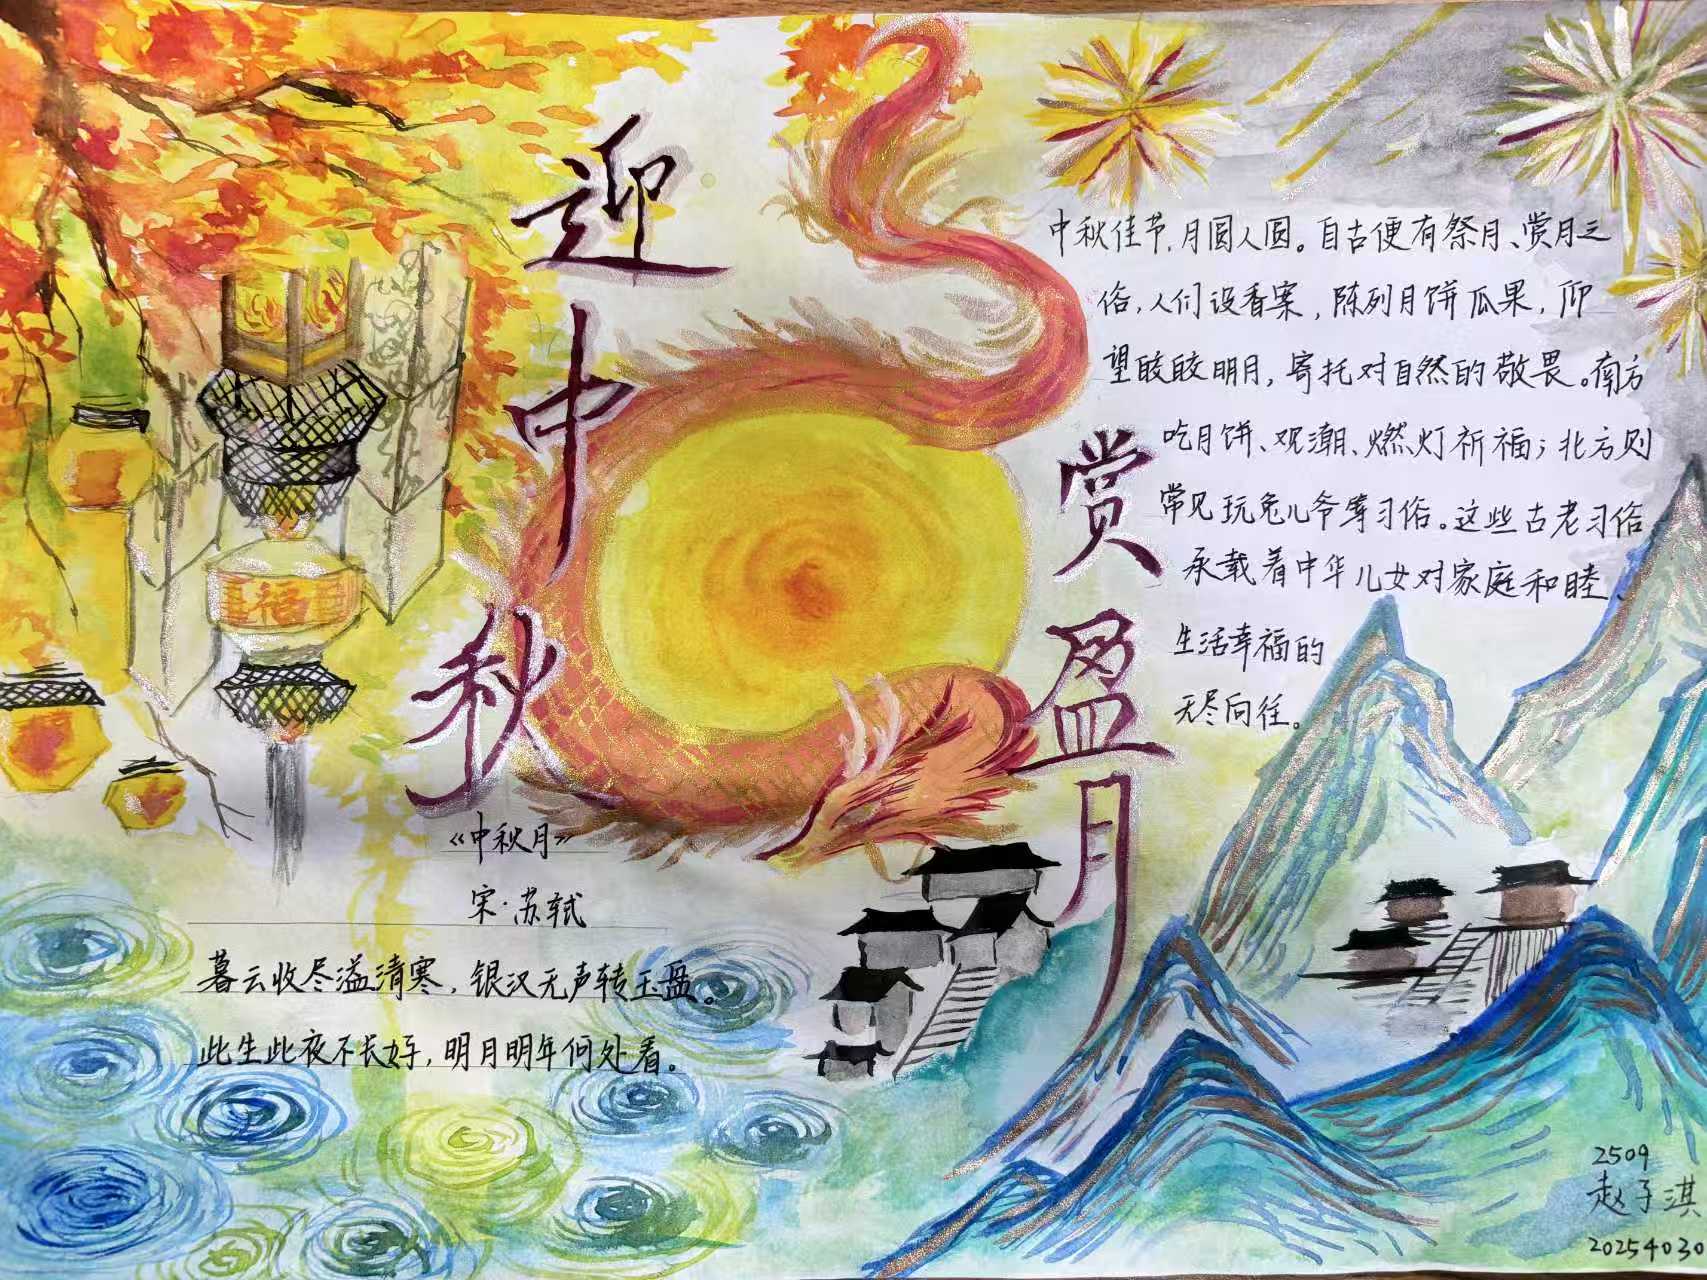 迎中秋
赏盈月
中秋佳节,月圆人圆。自古便有祭月、赏月之
俗,人们设香案,陈列月饼瓜果,仰
望皎皎明月,寄托对自然的敬畏。南方
吃月饼、观潮、燃灯祈福;北方则
常见玩兔儿爷等习俗。这些古老习俗
承载着中华儿女对家庭和睦、
生活幸福的
无尽向往。
福
《中秋月》
宋·苏轼
暮云收尽溢清寒,银汉无声转玉盘。
此生此夜不长好,明月明年何处看。
2509
赵子淇
20254030